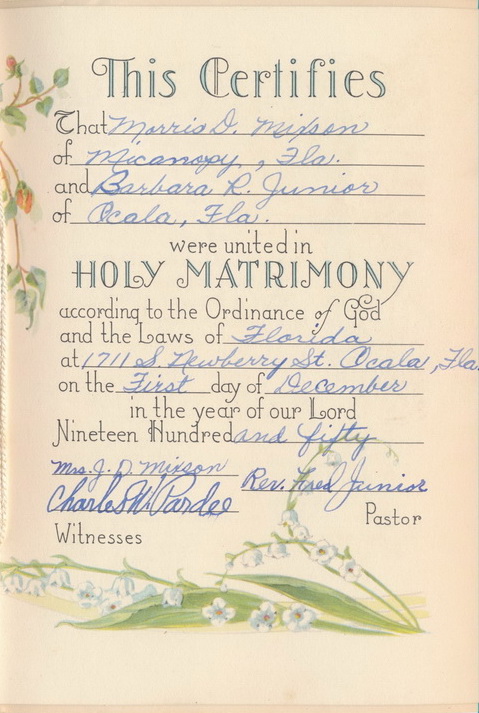 This Certifies
That Morris D. Mixson
of Micanopy, Fla.
and Barbara R. Junior
of Ocala, Fla.
were united in
HOLY MATRIMONY
according to the Ordinance of God
and the Laws of Florida
at 1711 S Newberry St. Ocala, Fla.
on the First day of December
in the year of our Lord
Nineteen Hundred and fifty
Mrs. J. D. Mixson
Rev. Fred Junior
Charles W. Pardee
Pastor
Witnesses